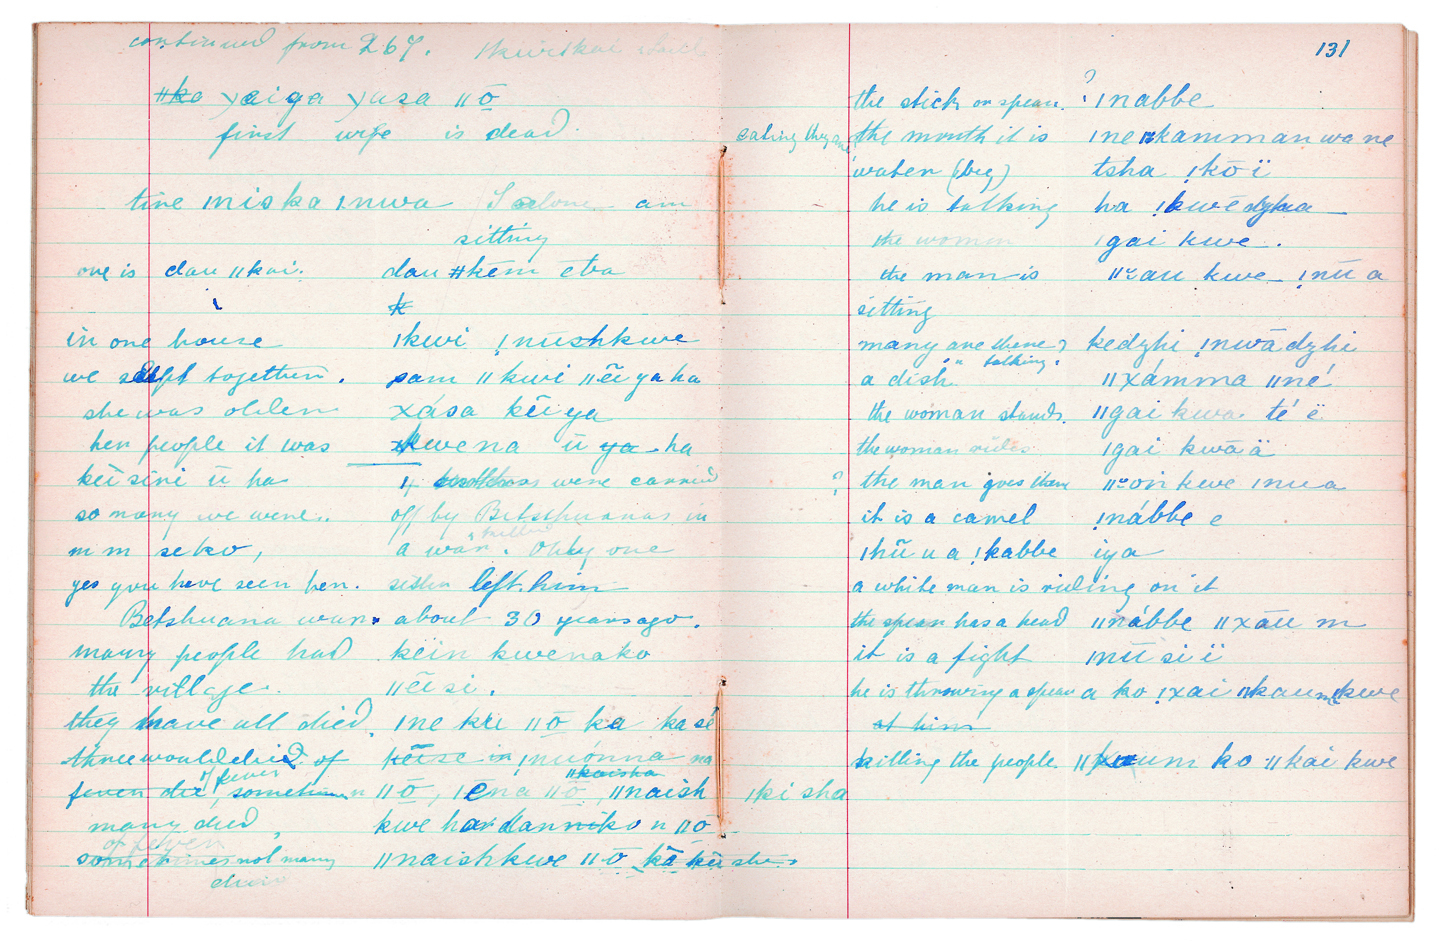 continued from 267. ǀkwiskai said
ǁka χaiga χasa ǁō
first wife is dead.
tine ǀniska ǃnwa I alone am
sitting
one is dau ǁkai. dau ǂkēm ēta
k
in one house ǀkwi ǃnūshkwe
we slept together. sam ǁkwi ǁēū ya ha
she was older χása kēi ya
her people it was kwena ū ya ha
kēi sini ū ha 14 brothers were carried
so many we were.. off by Betshuanas in
m m seko, a war. Only one
yes you have seen her. sister left him
Betshuana war about 30 years ago.
many people had kēin kwenako
the village. ǁēi si.
they have all died, ǀne kēi ǁō ka ka sé
three would died of kēise in ǃnuónna na
of fever ǁkaisha
fever die, sometimes ǁō, ǀēna ǁō ǁnaish ǀki sha
many died, kwe har danniko n ǁō
of fever
sometimes not many ǁnaishkwe ǁō kā kēi she
dies
131
the stick or spear. ? ǃnabbe
eating they are the mouth it is ǀne ǁkamman wa ne
water (big) tsha ǃkō ï
he is talking ha ǃkwē dzhaa
the woman ǀgai kwe.
the man is ǁau kwe ǃnū a
sitting
many are there, kedzhi ǃnwādzhi
" " talking.
a dish ǁχámma ǁné
the woman stands. ǁgai kwa té ë
the woman rides ǀgai kwāä
? the man gives them ǁon kwe ǀnua
it is a camel ǃnábbe e
ǀhū u a ǃkabbe iya
a white man is riding on it
the spear has a head ǁnábbe ǁχāū m
it is a fight ǀnū si ï
he is throwing a spear a ko ǃχai ǁkaum ǀkwe
at him
killing the people ǁχaum ko ǁkai kwe